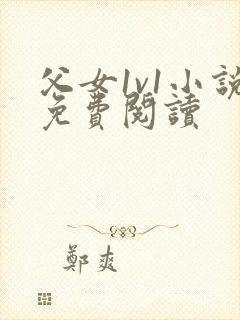 父女1v1小說
免費閱讀
鄭爽